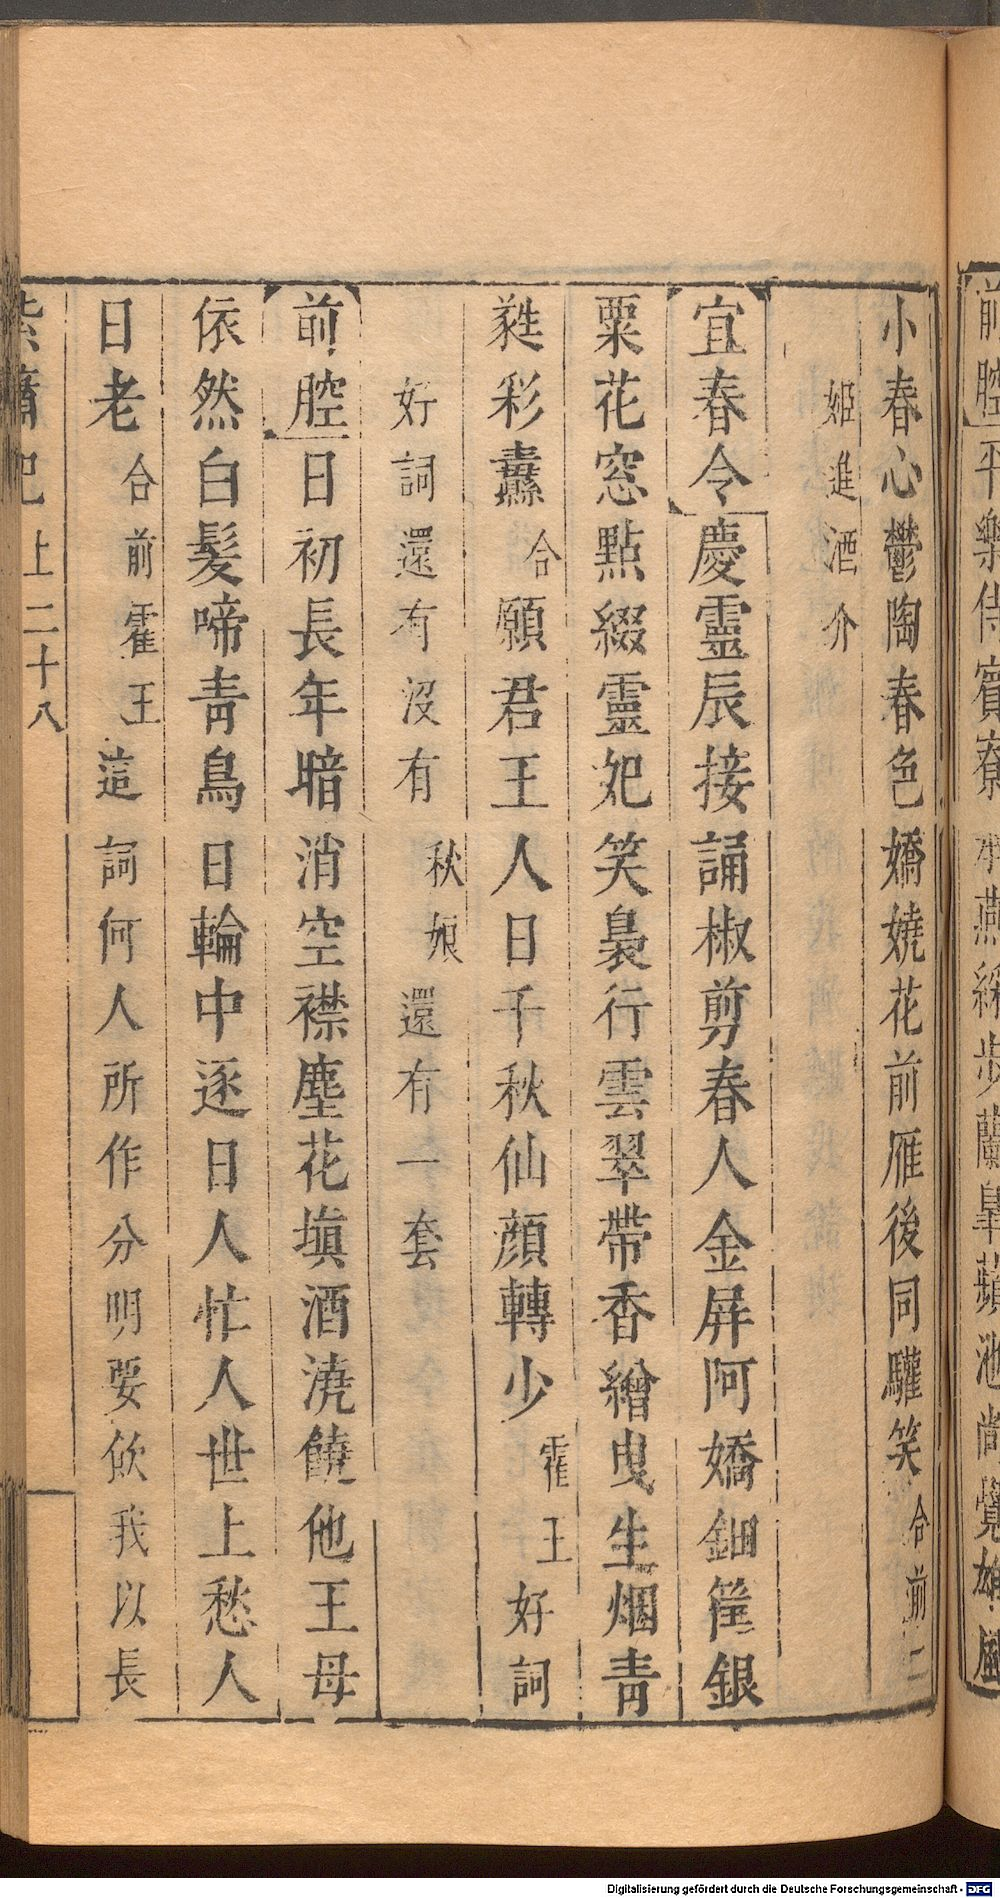 前腔平樂侍賓寮 燕綵步蘭皐蘋池尚覺雄風
小春心鬱陶春色嬌嬈花前雁後同驩笑合前二
姬進酒介
宜春令慶靈辰接誦椒剪春人金屛阿嬌鈿筐銀
粟花窓點綴靈妃笑裊行雲翠帶香繒曳生烟靑
蕤彩纛合願君王人日千秋仙顔轉少霍王好詞
好詞還有沒有秋娘還有一套
前腔日初長年暗消空襟塵花塡酒澆饒他王母
依然白髮啼靑鳥日輪中逐日人忙人世上愁人
日老合前霍王這詞何人所作分明要飮我以長
紫簫記上二十八
Digitalisierung gefördert durch die Deutsche Forschungsgemeinschaft - DFG